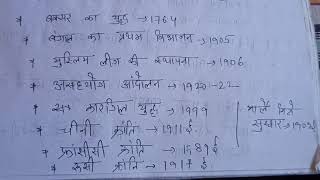 * बक्सर का युद्ध → 1764
* बंगाल का प्रथम विभाजन → 1905
* मुस्लिम लीग की स्थापना → 1906
* असहयोग आंदोलन → 1920-22
* कारगिल युद्ध → 1999
* चीनी क्रांति → 1911 ई
* फ्रांसीसी क्रांति → 1689 ई
* रूसी क्रांति → 1917 ई
मार्ले मिंटो
सुधार → 1909